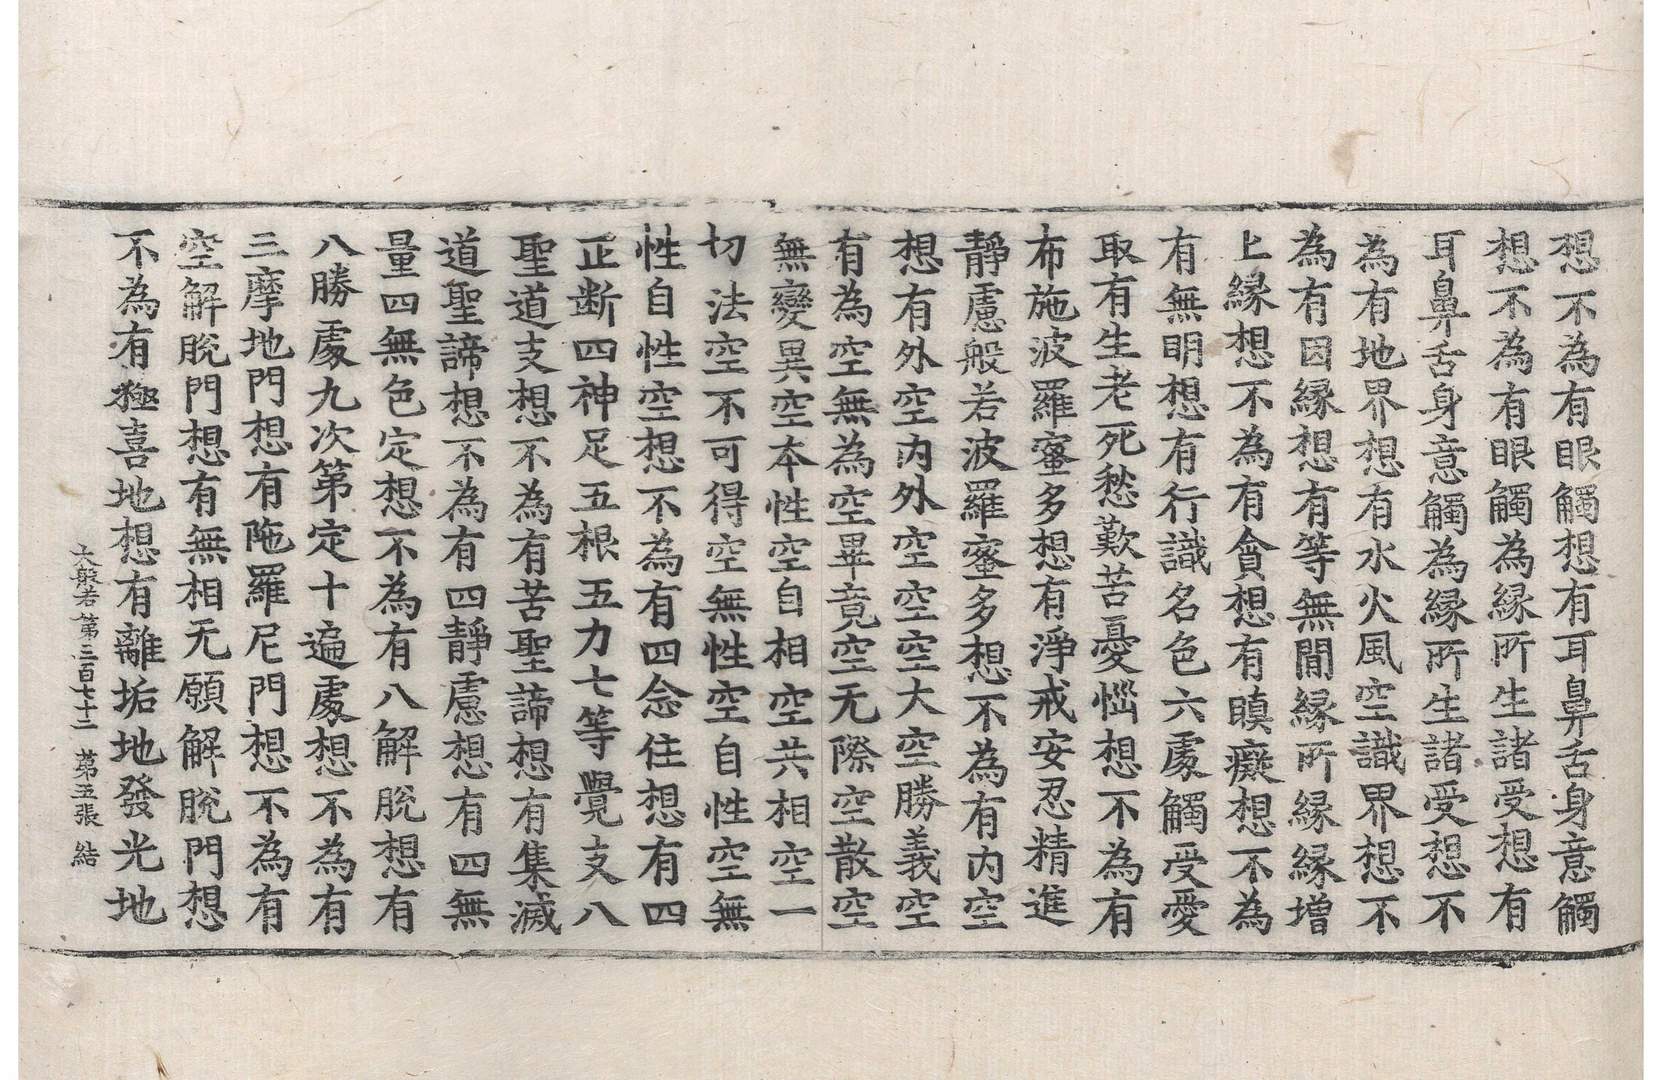 想不為有眼觸想有耳鼻舌身意觸
想不為有眼觸為縁所生諸受想有
耳鼻舌身意觸為縁所生諸受想不
為有地界想有水火風空識界想不
為有因縁想有等無間縁所縁縁增
上縁想不為有貪想有瞋癡想不為
有無明想有行識名色六處觸受愛
取有生老死愁歎苦憂惱想不為有
布施波羅蜜多想有淨戒安忍精進
靜慮般若波羅蜜多想不為有內空
想有外空內外空空空大空勝義空
有為空無為空畢竟空无際空散空
無變異空本性空自相空共相空一
切法空不可得空無性空自性空無
性自性空想不為有四念住想有四
正斷四神足五根五力七等覺支八
聖道支想不為有苦聖諦想有集滅
道聖諦想不為有四靜慮想有四無
量四無色定想不為有八解脫想有
八勝處九次第定十遍處想不為有
三摩地門想有陁羅尼門想不為有
空解脫門想有無相无願解脫門想
不為有極喜地想有離垢地發光地
大般若第三百七十二 第五張 結